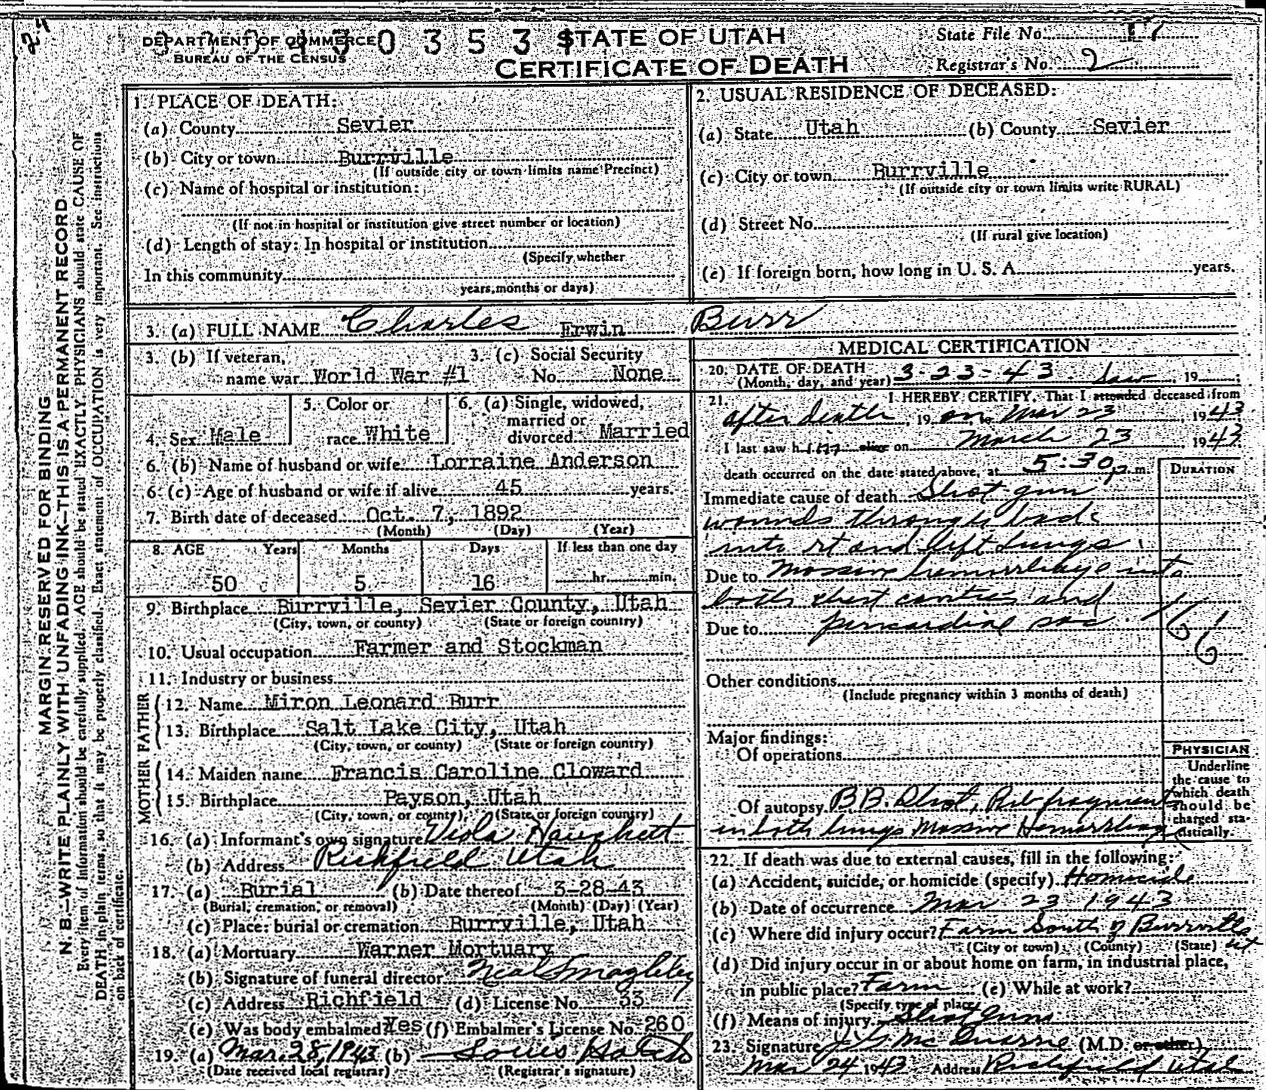 24
DEPARTMENT OF COMMERCE
BUREAU OF THE CENSUS
STATE OF UTAH
CERTIFICATE OF DEATH
State File No.
Registrar's No. 2
MARGIN RESERVED FOR BINDING
N. B.—WRITE PLAINLY WITH UNFADING INK—THIS IS A PERMANENT RECORD
Every item of information should be carefully supplied. AGE should be stated EXACTLY. PHYSICIANS should state CAUSE OF
DEATH in plain terms, so that it may be properly classified. Exact statement of OCCUPATION is very important. See instructions
on back of certificate.
1. PLACE OF DEATH:
(a) County Sevier
(b) City or town Burrville
(If outside city or town limits name Precinct)
(c) Name of hospital or institution:
(If not in hospital or institution give street number or location)
(d) Length of stay: In hospital or institution
(Specify whether
In this community
years, months or days)
2. USUAL RESIDENCE OF DECEASED:
(a) State Utah (b) County Sevier
(c) City or town Burrville
(If outside city or town limits write RURAL)
(d) Street No.
(If rural give location)
(e) If foreign born, how long in U. S. A. years.
3. (a) FULL NAME Charles Erwin Burr
3. (b) If veteran, name war World War #1
3. (c) Social Security No. None
4. Sex Male
5. Color or race White
6. (a) Single, widowed, married or divorced Married
6. (b) Name of husband or wife Lorraine Anderson
6. (c) Age of husband or wife if alive 45 years.
7. Birth date of deceased Oct. 7, 1892
(Month) (Day) (Year)
8. AGE Years Months Days If less than one day
50 5 16 hr. min.
9. Birthplace Burrville, Sevier County, Utah
(City, town, or county) (State or foreign country)
10. Usual occupation Farmer and Stockman
11. Industry or business
FATHER
12. Name Miron Leonard Burr
13. Birthplace Salt Lake City, Utah
(City, town, or county) (State or foreign country)
MOTHER
14. Maiden name Francis Caroline Cloward
15. Birthplace Payson, Utah
(City, town, or county) (State or foreign country)
16. (a) Informant's own signature Viola
(b) Address Richfield Utah
17. (a) Burial (b) Date thereof 3-28-43
(Burial, cremation, or removal) (Month) (Day) (Year)
(c) Place: burial or cremation Burrville, Utah
18. (a) Mortuary Warner Mortuary
(b) Signature of funeral director Neal
(c) Address Richfield (d) License No. 33
(e) Was body embalmed Yes (f) Embalmer's License No. 260
19. (a) Mar. 28, 1943 (b) Louis
(Date received local registrar) (Registrar's signature)
MEDICAL CERTIFICATION
20. DATE OF DEATH 3-23-43 saw, 19
(Month, day, and year)
21. I HEREBY CERTIFY, That I attended deceased from
after death, 19 on, to Mar 23 1943
I last saw h alive on March 23 1943
death occurred on the date stated above, at 5:30 p.m.
DURATION
Immediate cause of death Shot gun
wounds through back
into rt and left lungs
Due to Massive hemorrhage into
both chest cavities and
Due to pericardial sac.
166
Other conditions
(Include pregnancy within 3 months of death)
Major findings:
Of operations
Of autopsy B.B. Shot, Rib fragments
in both lungs Massive Hemorrhage
PHYSICIAN
Underline
the cause to
which death
should be
charged sta-
tistically.
22. If death was due to external causes, fill in the following:
(a) Accident, suicide, or homicide (specify) Homicide
(b) Date of occurrence Mar 23 1943
(c) Where did injury occur? Farm South of Burrville Ut
(City or town) (County) (State)
(d) Did injury occur in or about home on farm, in industrial place,
in public place? Farm (e) While at work?
(Specify type of place)
(f) Means of injury Shot guns
23. Signature (M.D. or other)
Mar 24 1943 Address Richfield Utah